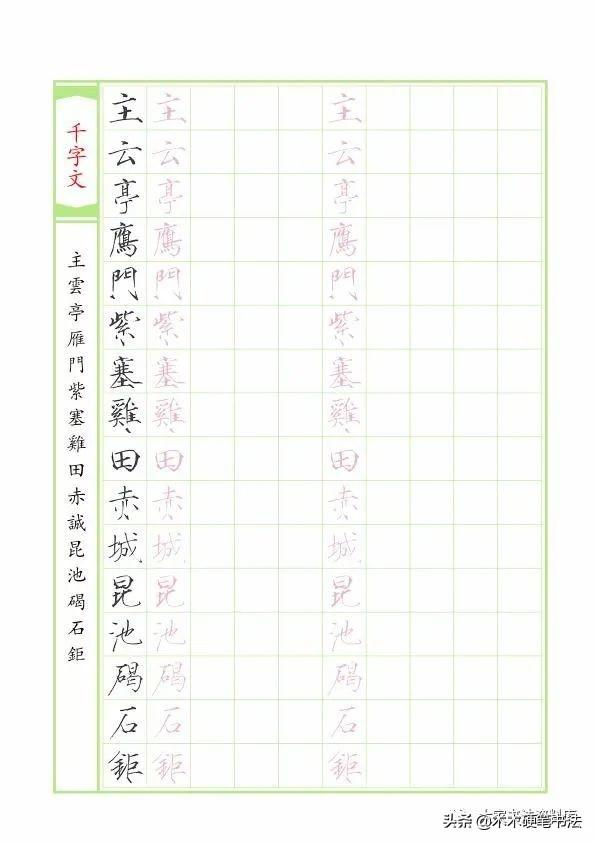 千字文
主雲亭雁門紫塞雞田赤誠昆池碣石鉅
主云亭鷹門紫塞雞田赤城昆池碣石鉅
主云亭鷹門紫塞雞田赤城昆池碣石鉅
主云亭鷹門紫塞雞田赤城昆池碣石鉅
头条 @木木硬笔书法